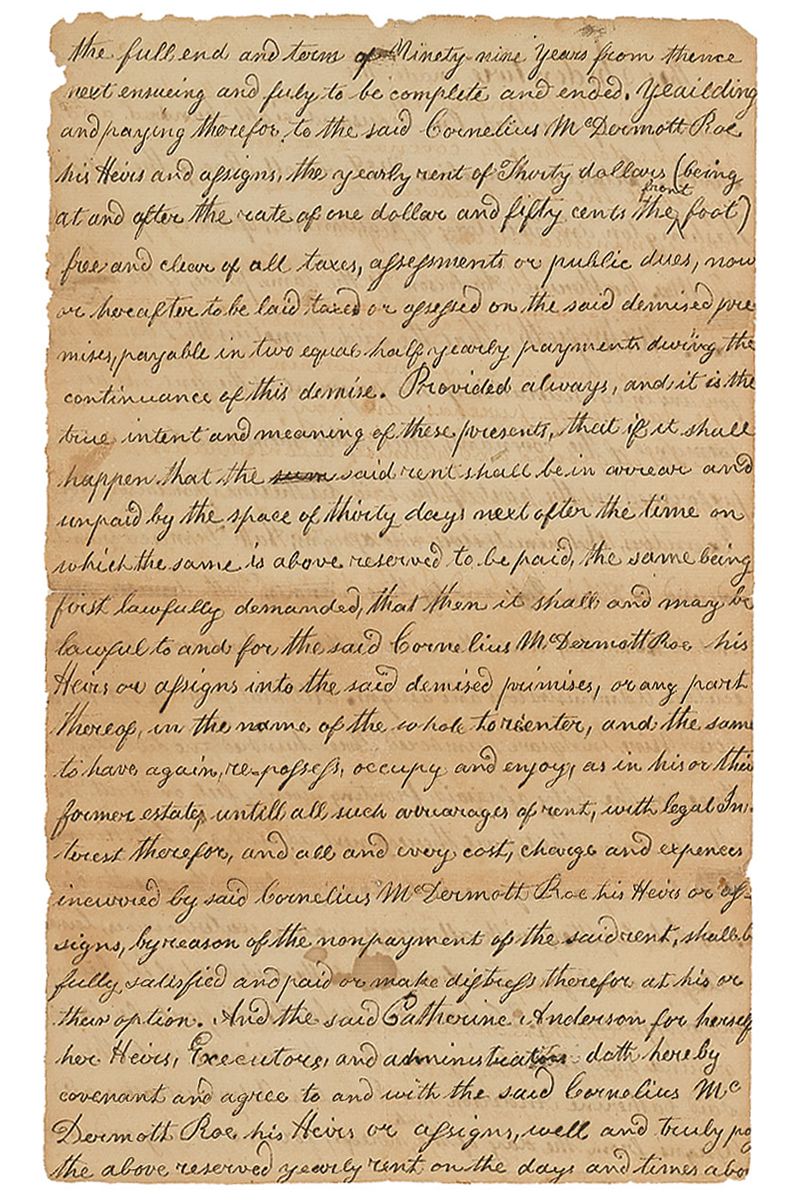 the full end and term of Ninety nine Years from thence
next ensueing and fuly to be complete and ended. Yeailding
and paying therefor to the said Cornelius McDermott Roe
his Heirs and assigns, the yearly rent of Thirty dollars (being
at and after the rate of one dollar and fifty cents the front foot)
free and clear of all taxes, assessments or public dues, now
or hereafter to be laid taxed or assessed on the said demised pre
mises, payable in two equal half yearly payments during the
continuance of this demise. Provided always, and it is the
true intent and meaning of these presents, that if it shall
happen that the sum said rent shall be in arrear and
unpaid by the space of thirty days next after the time on
which the same is above reserved to be paid, the same being
first lawfully demanded, that then it shall and may be
lawful to and for the said Cornelius McDermott Roe his
Heirs or assigns into the said demised primises, or any part
thereof, in the name of the whole to reenter, and the same
to have again, re-possess, occupy and enjoy, as in his or their
former estate, untill all such arrearages of rent, with legal In-
terest therefor, and all and every cost, charge and expences
incurred by said Cornelius McDermott Roe his Heirs or as-
signs, by reason of the nonpayment of the said rent, shall b
fully satisfied and paid or make distress therefor at his or
their option. And the said Catherine Anderson for herself
her Heirs, Executors, and administrators doth hereby
covenant and agree to and with the said Cornelius Mc
Dermott Roe his Heirs or assigns, well and truly pay
the above reserved yearly rent on the days and times abo